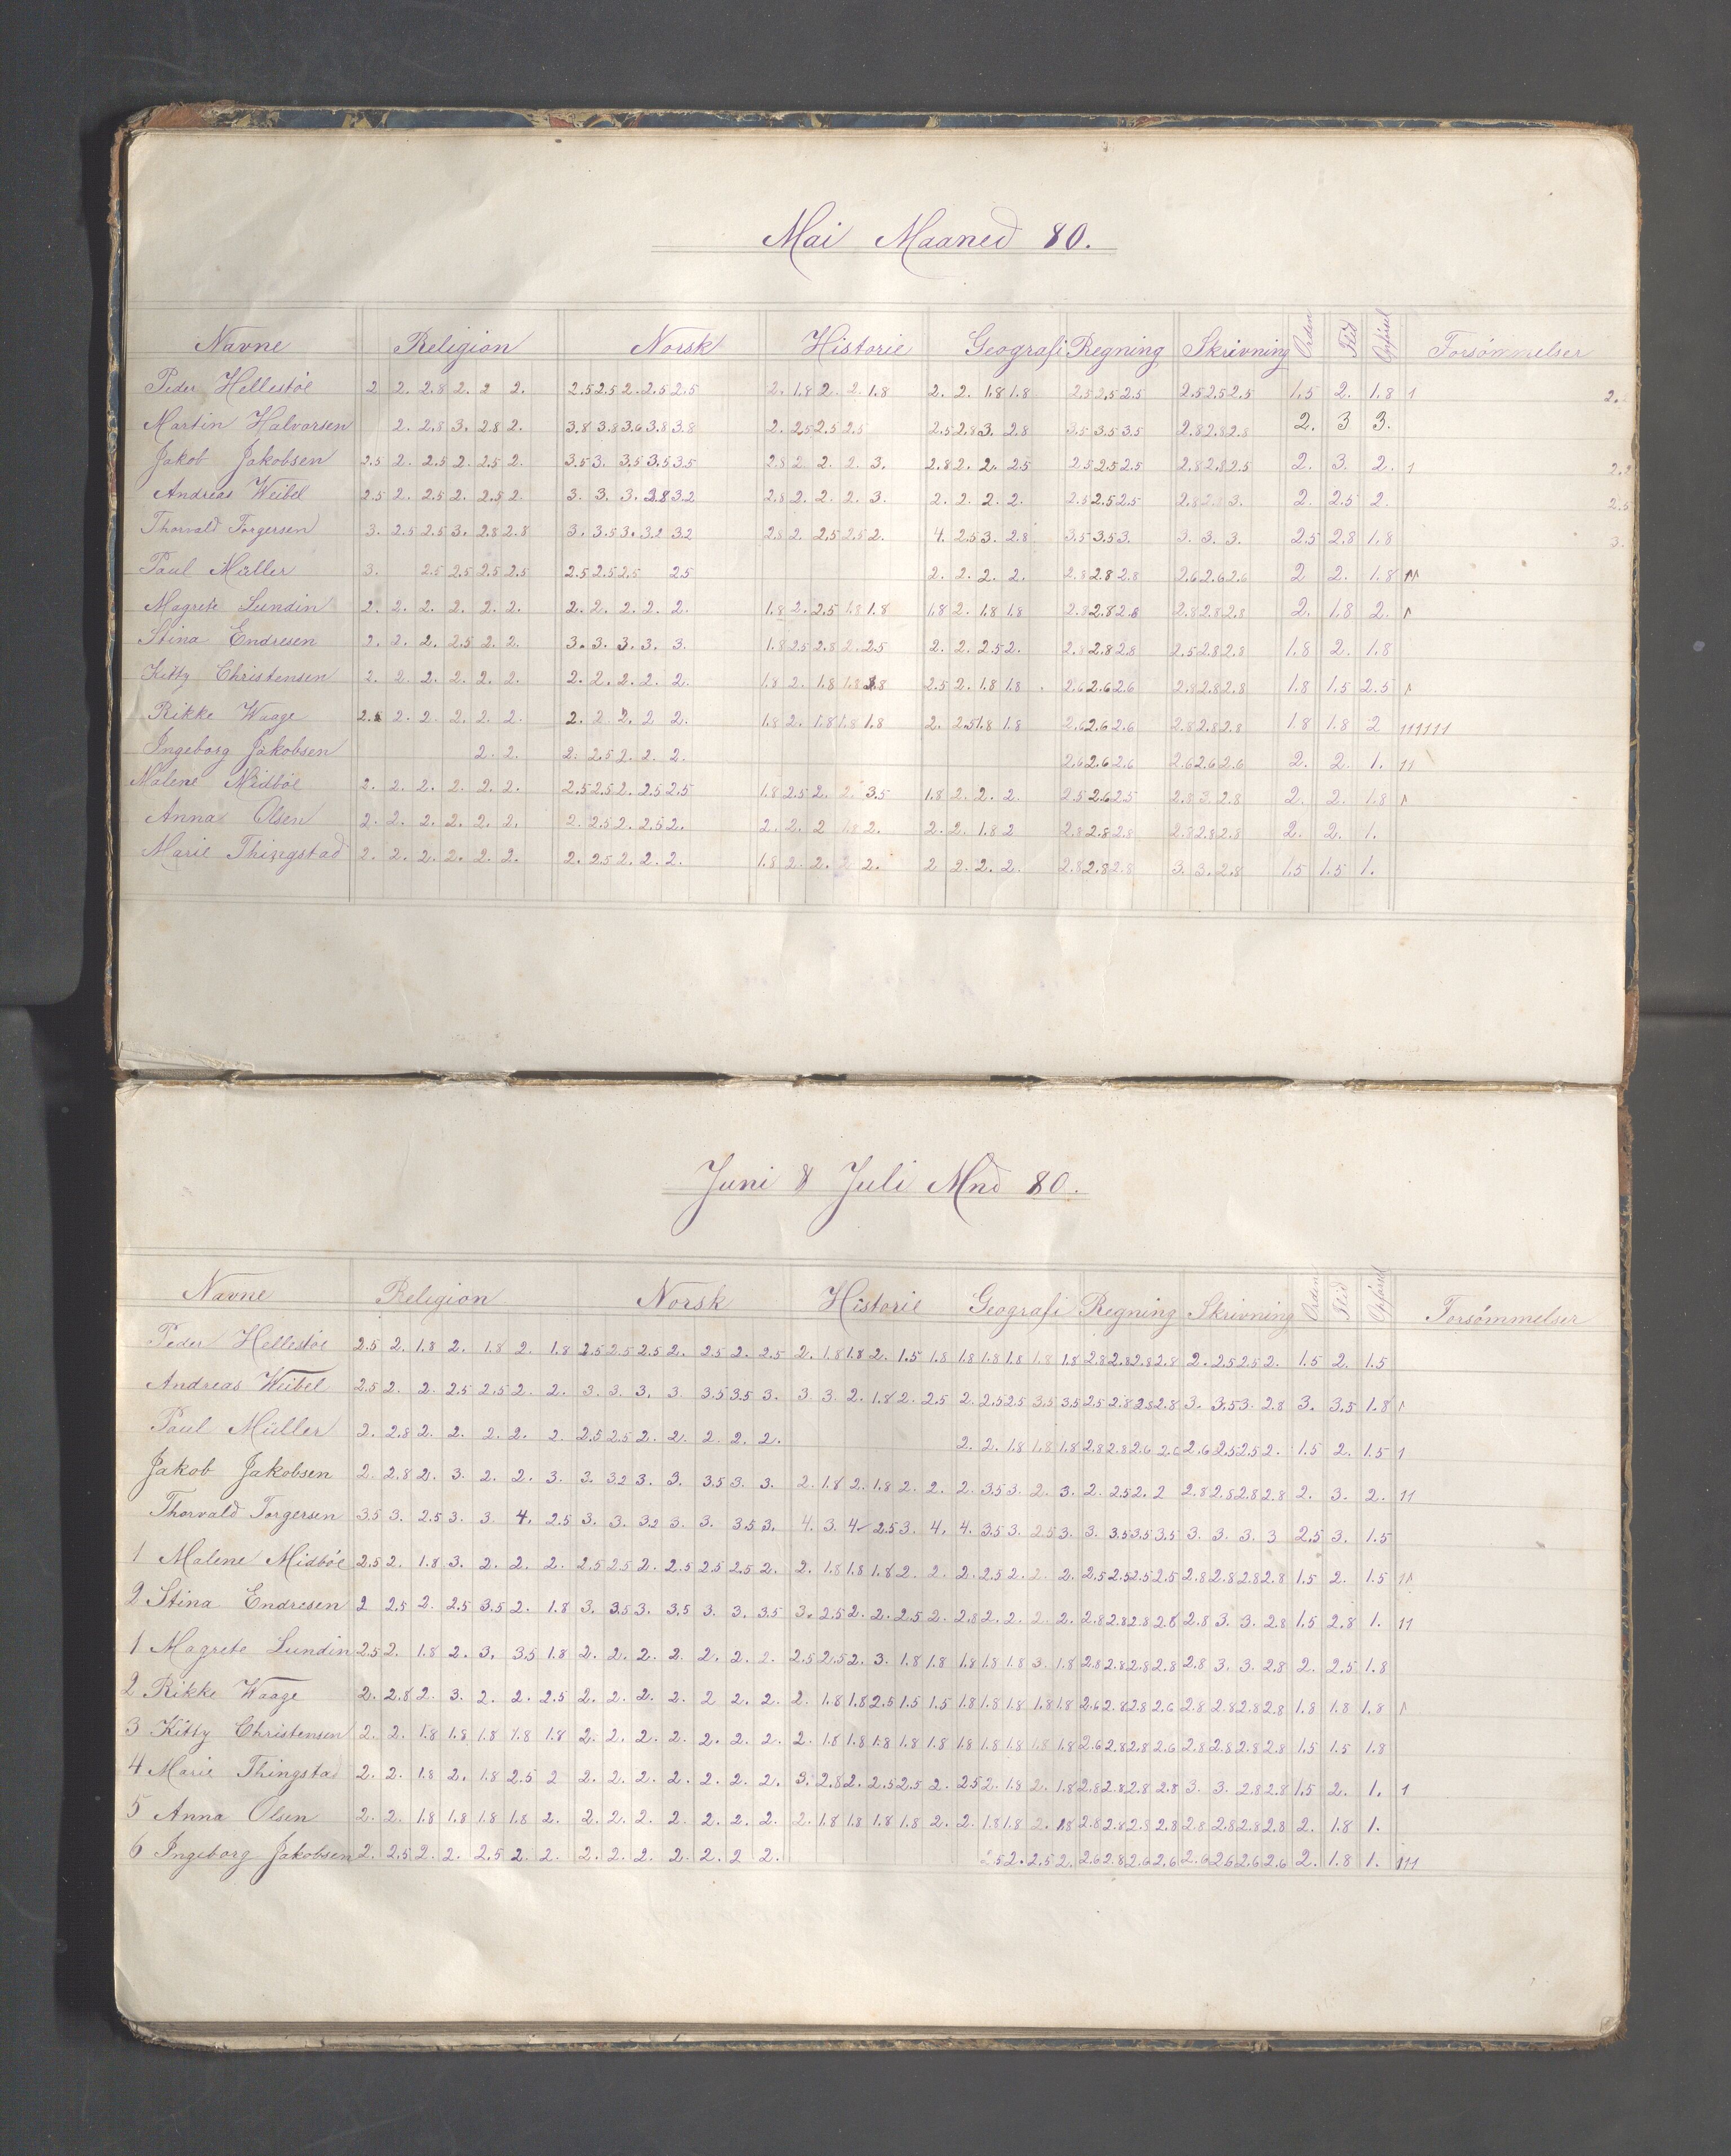 Mai Maaned 80.
Navne Religion Norsk Historie Geografi Regning Skrivning Orden Flid Opførsel Forsømmelser
Peder Hellestöe 2 2. 2.8 2. 2 2. 2.5 2.5 2. 2.5 2.5 2. 1.8 2. 2. 1.8 2. 2. 1.8 1.8 2.5 2.5 2.5 2.5 2.5 2.5 1.5 2. 1.8 1
Martin Halvorsen 2. 2.8 3. 2.8 2. 3.8 3.8 3.6 3.8 3.8 2. 2.5 2.5 2.5 2.5 2.8 3. 2.8 3.5 3.5 3.5 2.8 2.8 2.8 2. 3 3.
Jakob Jakobsen 2.5 2. 2.5 2. 2.5 2. 3.5 3. 3.5 3.5 3.5 2.8 2 2. 2. 3. 2.8 2. 2. 2.5 2.5 2.5 2.5 2.8 2.8 2.5 2. 3. 2. 1
Andreas Weibel 2.5 2. 2.5 2. 2.5 2. 3. 3. 3. 3.8 3.2 2.8 2. 2. 2. 3. 2. 2. 2. 2. 2.5 2.5 2.5 2.8 2.8 3. 2. 2.5 2.
Thorvald Torgersen 3. 2.5 2.5 3. 2.8 2.8 3. 3.5 3. 3.2 3.2 2.8 2. 2.5 2.5 2. 4. 2.5 3. 2.8 3.5 3.5 3. 3. 3. 3. 2.5 2.8 1.8
Paul Müller 3. 2.5 2.5 2.5 2.5 2.5 2.5 2.5 2.5 2. 2. 2. 2. 2.8 2.8 2.8 2.6 2.6 2.6 2 2. 1.8 11
Magrete Lundin 2. 2. 2. 2. 2. 2. 2. 2. 2. 2. 2. 1.8 2. 2.5 1.8 1.8 1.8 2. 1.8 1.8 2.8 2.8 2.8 2.8 2.8 2.8 2. 1.8 2. 1
Stina Endresen 2. 2. 2. 2.5 2. 2. 3. 3. 3. 3. 3. 1.8 2.5 2.8 2. 2.5 2. 2. 2.5 2. 2.8 2.8 2.8 2.5 2.8 2.8 1.8 2. 1.8
Kitty Christensen 2. 2. 2. 2. 2. 2. 2. 2. 2. 2. 2. 1.8 2. 1.8 1.8 1.8 2.5 2. 1.8 1.8 2.6 2.6 2.6 2.8 2.8 2.8 1.8 1.5 2.5 1
Rikke Waage 2.5 2. 2. 2. 2. 2. 2. 2. 2. 2. 2. 1.8 2. 1.8 1.8 1.8 2. 2.5 1.8 1.8 2.6 2.6 2.6 2.8 2.8 2.8 1.8 1.8 2 111111
Ingeborg Jakobsen 2. 2. 2. 2.5 2. 2. 2. 2.6 2.6 2.6 2.6 2.6 2.6 2. 2. 1. 11
Malene Midböe 2. 2. 2. 2. 2. 2. 2.5 2.5 2. 2.5 2.5 1.8 2.5 2. 2. 3.5 1.8 2. 2. 2. 2.5 2.6 2.5 2.8 3. 2.8 2. 2. 1.8 1
Anna Olsen 2. 2. 2. 2. 2. 2. 2. 2.5 2. 2.5 2. 2. 2. 2 1.8 2. 2. 2. 1.8 2 2.8 2.8 2.8 2.8 2.8 2.8 2. 2. 1.
Marie Thingstad 2. 2. 2. 2. 2. 2. 2. 2.5 2. 2. 2. 1.8 2. 2. 2. 2. 2 2. 2. 2. 2.8 2.8 2.8 3. 3. 2.8 1.5 1.5 1.
Juni & Juli Mnd 80.
Navne Religion Norsk Historie Geografi Regning Skrivning Orden Flid Opførsel Forsømmelser
Peder Hellestöe 2.5 2. 1.8 2. 1.8 2. 1.8 2.5 2.5 2.5 2. 2.5 2. 2.5 2. 1.8 1.8 2. 1.5 1.8 1.8 1.8 1.8 1.8 1.8 2.8 2.8 2.8 2.8 2. 2.5 2.5 2. 1.5 2. 1.5
Andreas Weibel 2.5 2. 2. 2.5 2.5 2. 2. 3. 3. 3. 3. 3.5 3.5 3. 3. 3. 2. 1.8 2. 2.5 2. 2.5 2.5 3.5 3.5 2.5 2.8 2.8 2.8 3. 3.5 3. 2.8 3. 3.5 1.8 1
Paul Müller 2. 2.8 2. 2. 2. 2. 2. 2.5 2.5 2. 2. 2. 2. 2. 2. 2. 1.8 1.8 1.8 2.8 2.8 2.6 2.6 2.6 2.5 2.5 2. 1.5 2. 1.5 1
Jakob Jakobsen 2. 2.8 2. 3. 2. 2. 3. 3. 3.2 3. 3. 3.5 3. 3. 2. 1.8 2. 1.8 2. 2. 2. 3.5 3. 2. 3. 2. 2.5 2. 2 2.8 2.8 2.8 2.8 2. 3. 2. 11
Thorvald Torgersen 3.5 3. 2.5 3. 3. 4. 2.5 3. 3. 3.2 3. 3. 3.5 3. 4. 3. 4. 2.5 3. 4. 4. 3.5 3. 2.5 3. 3. 3.5 3.5 3.5 3. 3. 3. 3 2.5 3. 1.5
1 Malene Midböe 2.5 2. 1.8 3. 2. 2. 2. 2.5 2.5 2. 2.5 2.5 2.5 2. 2. 1.8 1.8 1.8 2. 2. 2. 2.5 2. 2. 2. 2.5 2.5 2.5 2.5 2.8 2.8 2.8 2.8 1.5 2. 1.5 11
2 Stina Endresen 2 2.5 2. 2.5 3.5 2. 1.8 3. 3.5 3. 3.5 3. 3. 3.5 3. 2.5 2. 2. 2.5 2. 2.8 2. 2. 2. 2. 2.8 2.8 2.8 2.8 2.8 3. 3. 2.8 1.5 2.8 1. 11
1 Magrete Lundin 2.5 2. 1.8 2. 3. 3.5 1.8 2. 2. 2. 2. 2. 2. 2. 2.5 2.5 2. 3. 1.8 1.8 1.8 1.8 1.8 3. 1.8 2.8 2.8 2.8 2.8 2.8 3. 3. 2.8 2. 2.5 1.8
2 Rikke Waage 2. 2.8 2. 3. 2. 2. 2.5 2. 2. 2. 2. 2 2. 2. 2. 1.8 1.8 2.5 1.5 1.5 1.8 1.8 1.8 1.8 1.8 2.6 2.8 2.8 2.6 2.8 2.8 2.8 2.8 1.8 1.8 1.8 1
3 Kitty Christensen 2. 2. 1.8 1.8 1.8 1.8 1.8 2. 2. 2. 2. 2. 2. 2. 2. 1.8 1.8 1.8 1.8 1.8 1.8 1.8 1.8 1.8 1.8 2.6 2.8 2.8 2.6 2.8 2.8 2.8 2.8 1.5 1.5 1.8
4 Marie Thingstad 2. 2. 1.8 2. 1.8 2.5 2 2. 2. 2. 2. 2. 2. 2. 3. 2.8 2. 2.5 2.5 2. 2.5 2. 1.8 2. 1.8 2.8 2.8 2.8 2.8 3. 3. 2.8 2.8 1.5 2. 1. 1
5 Anna Olsen 2. 2. 1.8 1.8 1.8 1.8 2. 2. 2. 2. 2. 2. 2. 2. 2. 1.8 1.8 1.8 1.8 2. 2. 1.8 1.8 2. 1.8 2.8 2.8 2.8 2.8 2.8 2.8 2.8 2.8 2. 1.8 1.
6 Ingeborg Jakobsen 2. 2.5 2. 2. 2.5 2. 2. 2. 2. 2. 2. 2. 2 2. 2.5 2. 2.5 2. 2.6 2.8 2.6 2.6 2.6 2.6 2.6 2.6 2. 1.8 1. 111